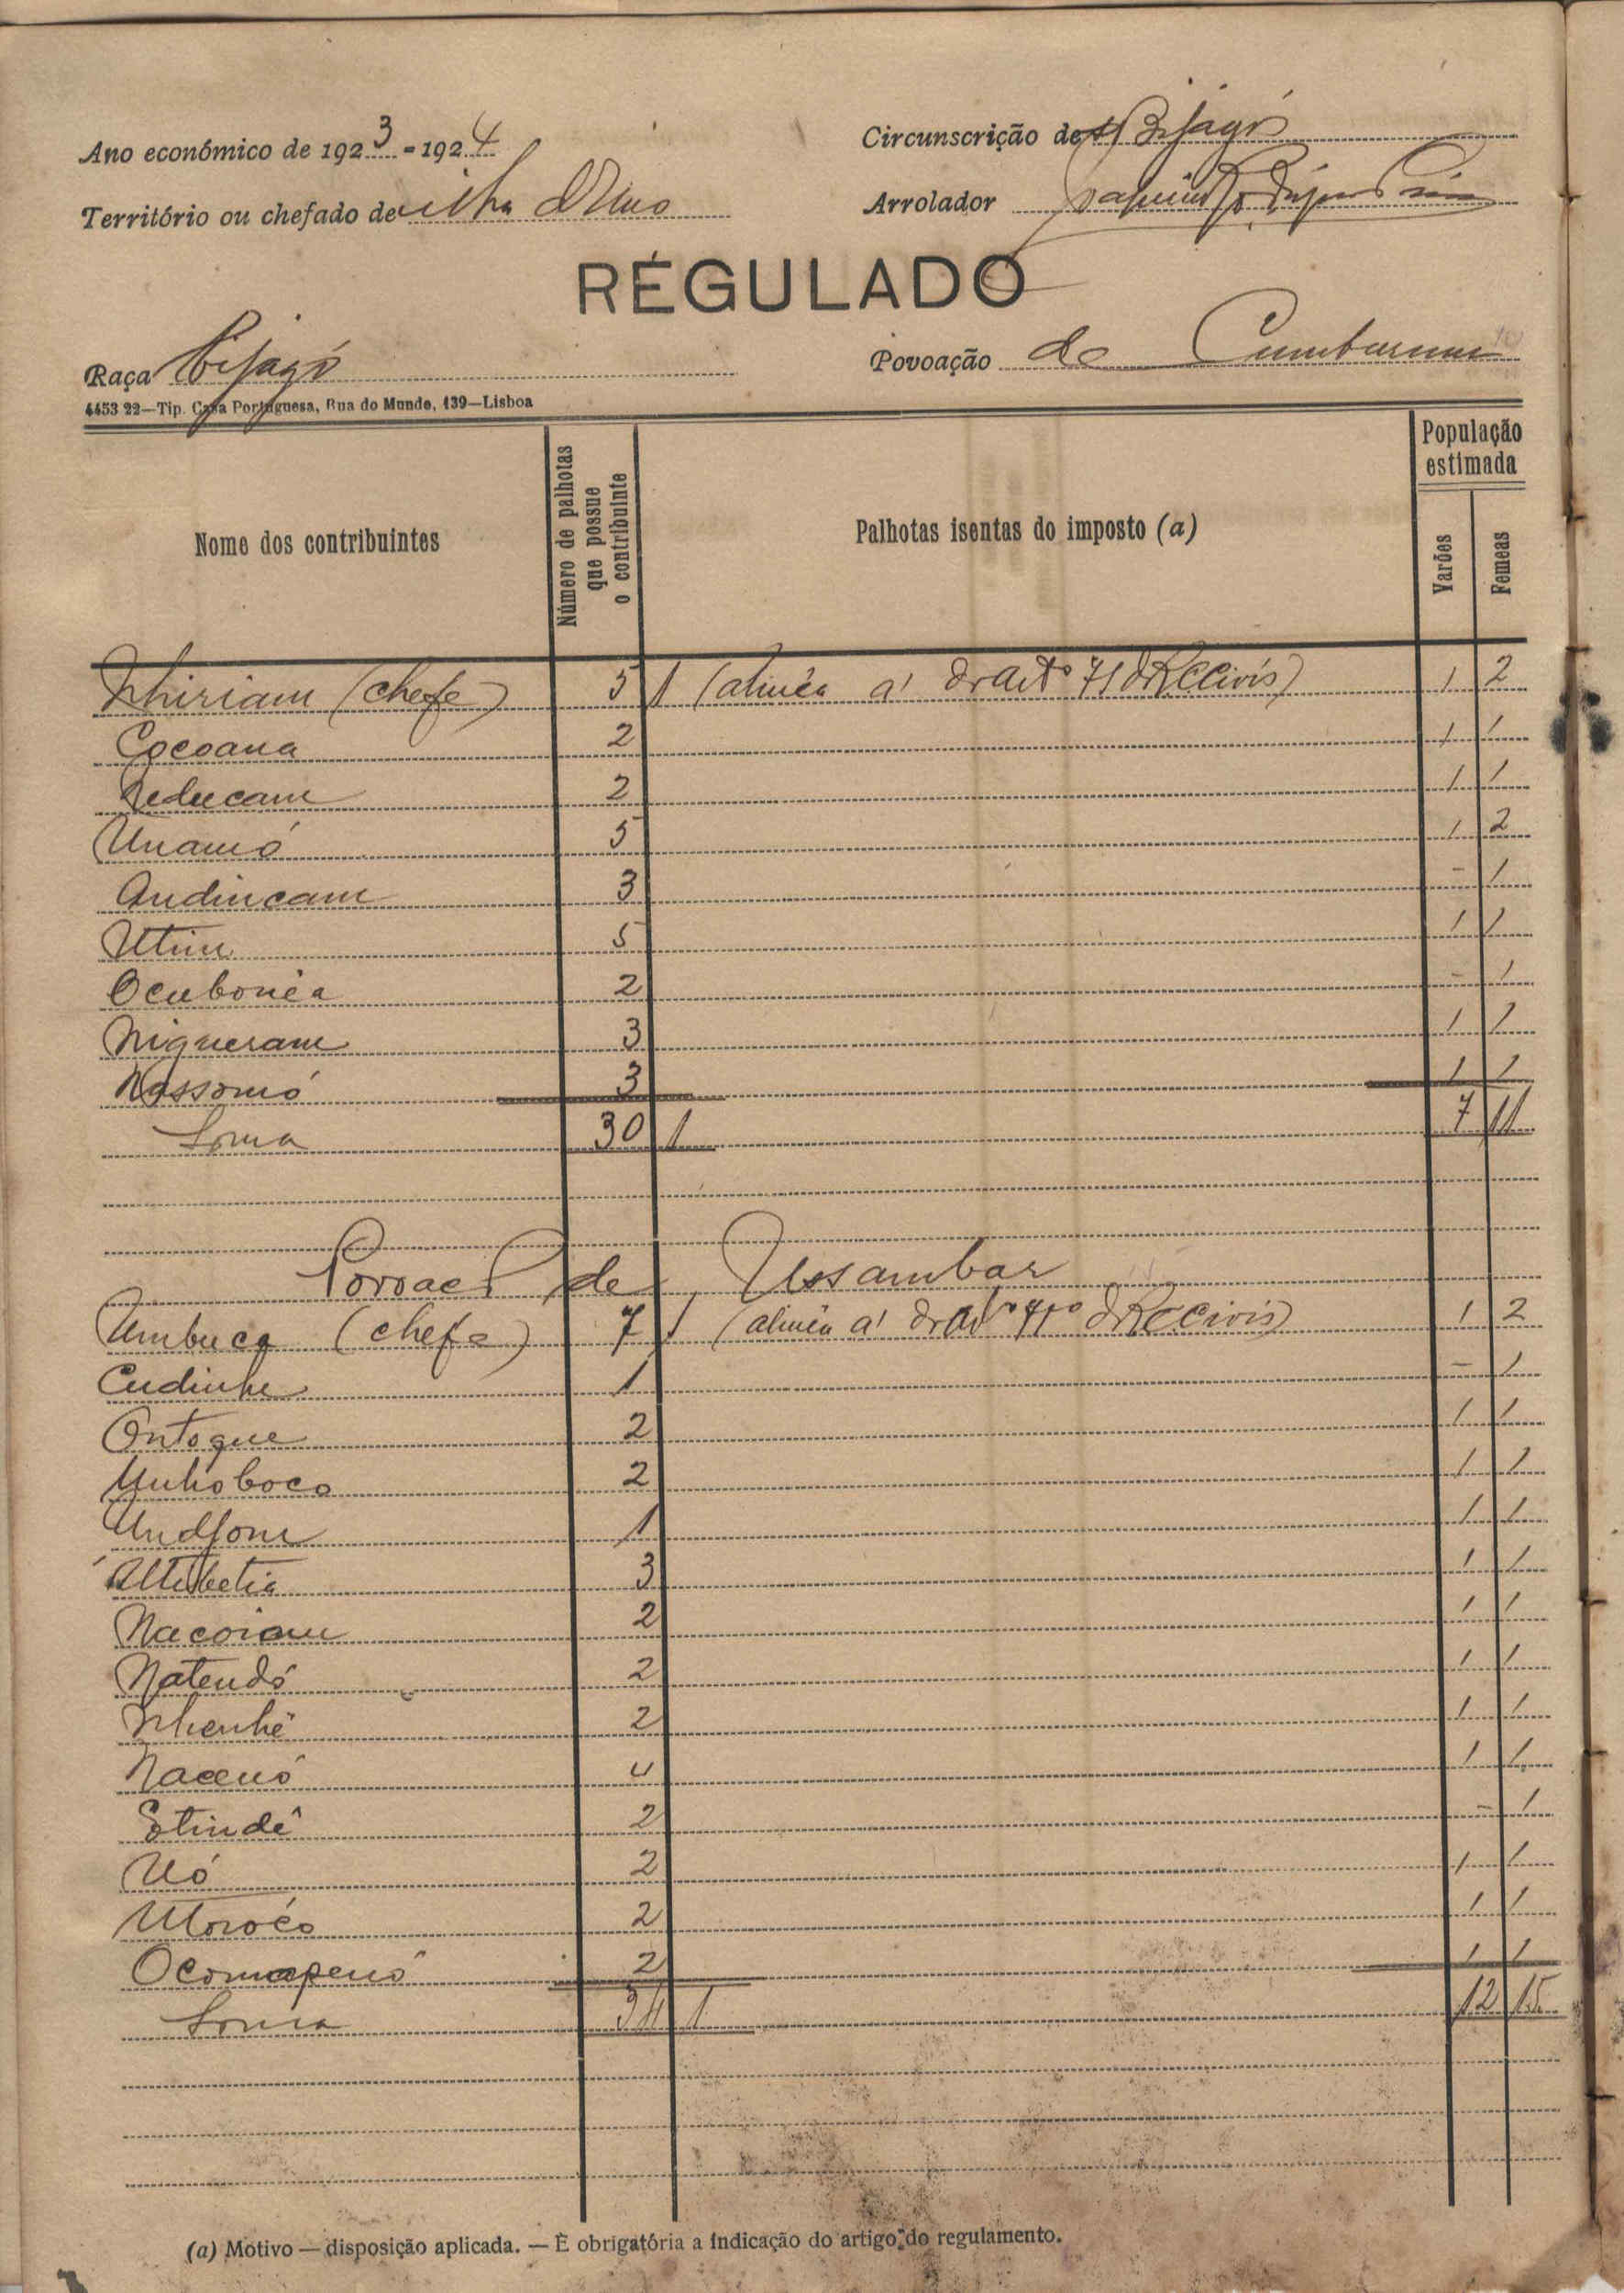 Ano económico de 1923-1924
Circunscrição de Bijagós
Território ou chefado de ilha d'Uno
Arrolador Rodrigues
RÉGULADO
Raça Bijagó
Povoação de Cumburum
4453 22—Tip. Casa Portuguesa, Rua do Mundo, 139—Lisboa
Nome dos contribuintes
Número de palhotas que possue o contribuinte
Palhotas isentas do imposto (a)
População estimada
Varões
Femeas
Nhiriam (chefe) 5 1 (alinea a' do artº 71 d R C Civis) 1 2
Cocoana 2 1 1
Neducam 2 1 1
Unamó 5 1 2
Andincam 3 - 1
Utim 5 1 1
Ocubonéa 2 - 1
Nigueram 3 1 1
Nossomó 3 1 1
Soma 30 1 7 11
Povoação de Ussambar
Umbuca (chefe) 7 1 (alinea a' do artº 71º d R C Civis) 1 2
Cudinhe 1 - 1
Ontoque 2 1 1
Unhoboco 2 1 1
Undjom 1 1 1
Utubetia 3 1 1
Nacoiam 2 1 1
Natendó 2 1 1
Nhenhê 2 1 1
Nacenó 4 1 1
Etindê 2 - 1
Uó 2 1 1
Moróco 2 1 1
Ocomapenó 2 1 1
Soma 34 1 12 15
(a) Motivo — disposição aplicada. — É obrigatória a indicação do artigo do regulamento.